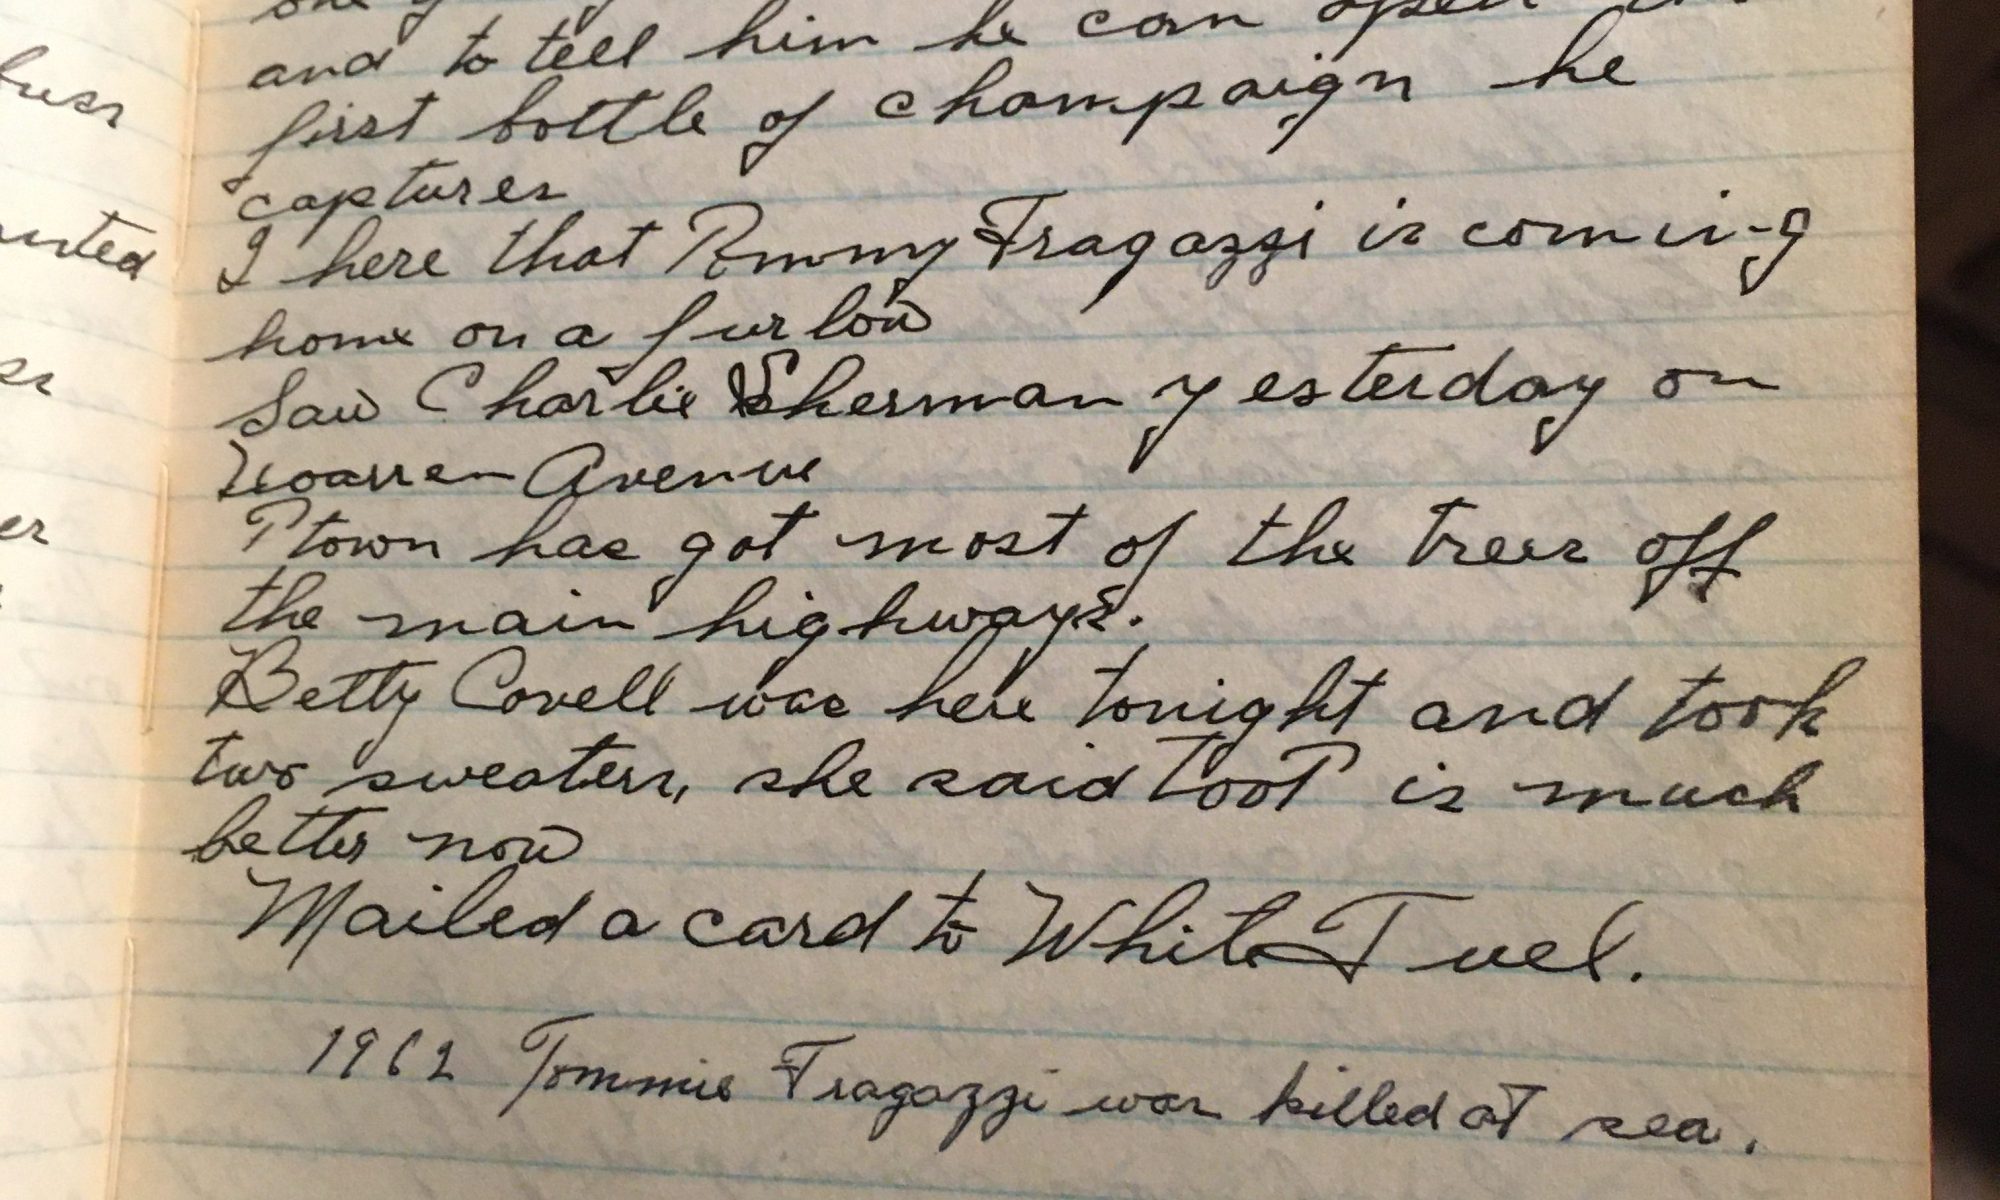 fuss
usted
er
and to tell him he can open
first bottle of champaign he
captures
I here that Tommy Fragazzi is coming
home on a furlow
Saw Charlie Sherman yesterday on
Warren Avenue
Ptown has got most of the trees off
the main highways.
Betty Covell was here tonight and took
two sweaters, she said Toot is much
better now
Mailed a card to White Tuel.
1962 Tommie Fragazzi was killed at sea.